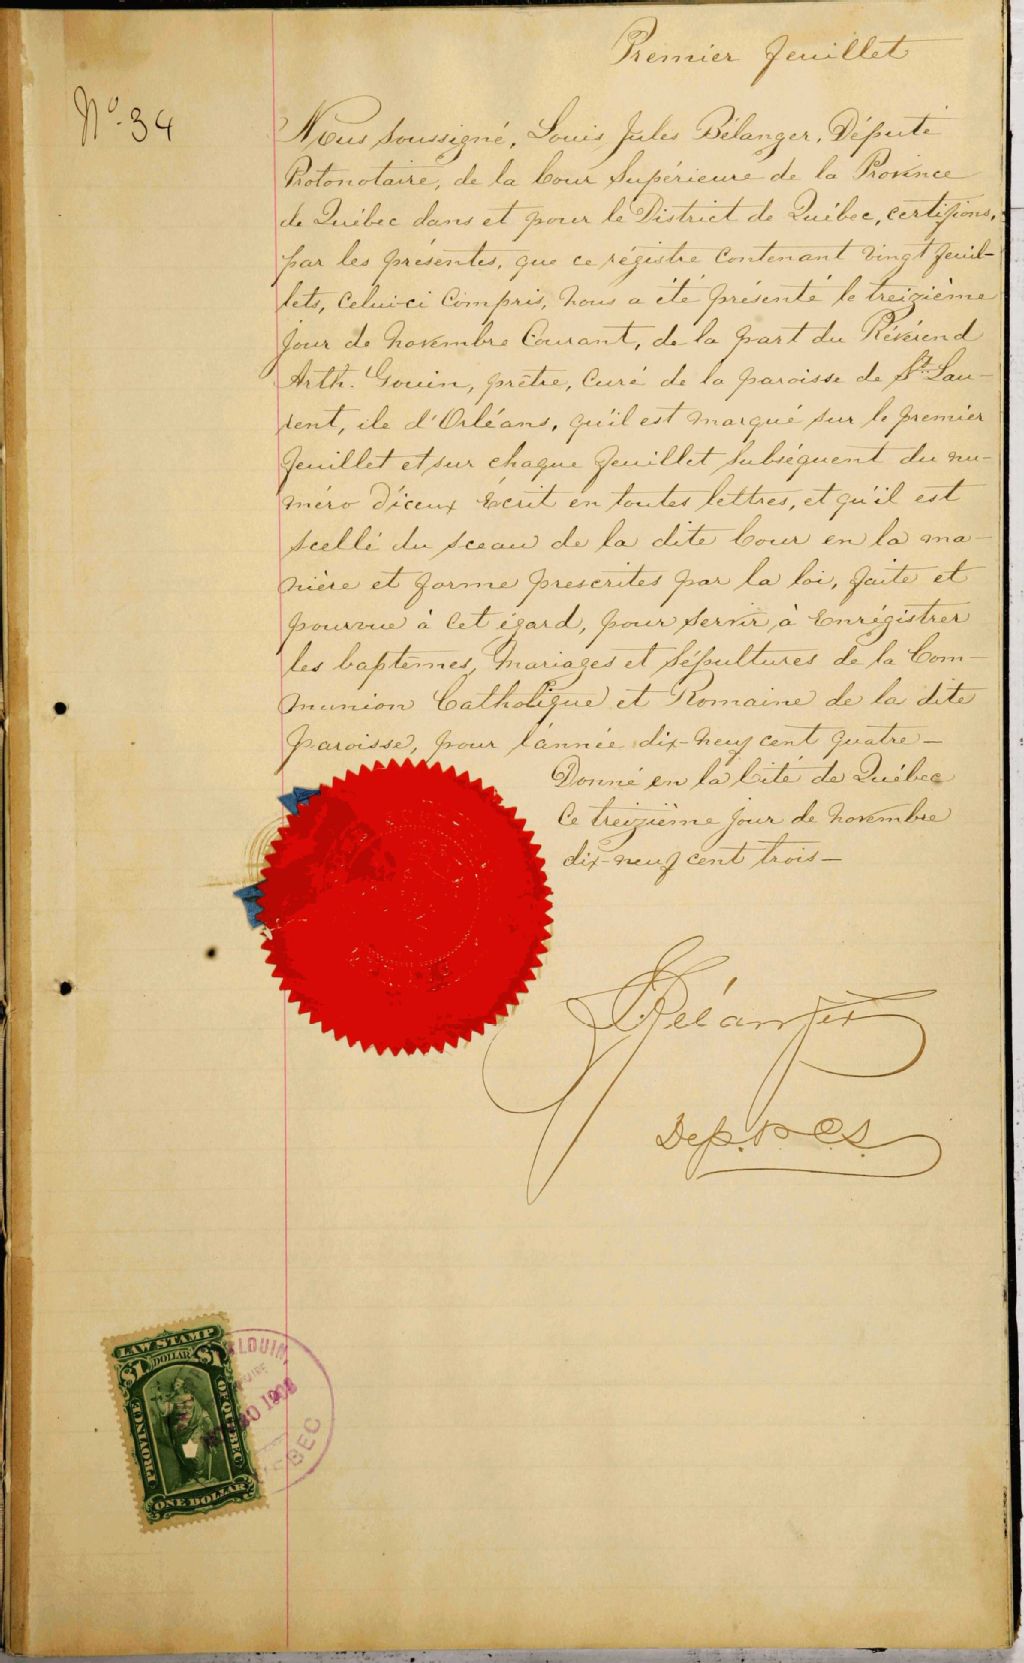 Premier feuillet
No. 34
Nous soussigné, Louis Jules Bélanger, Député
Protonotaire, de la Cour Supérieure de la Province
de Québec dans et pour le District de Québec, certifions,
par les présentes, que ce régistre contenant vingt feuil-
lets, celui-ci compris, nous a été présenté le treizième
jour de novembre courant, de la part du Révérend
Arth. Gouin, prêtre, curé de la paroisse de St. Lau-
rent, ile d'Orléans, qu'il est marqué sur le premier
feuillet et sur chaque feuillet subséquent du nu-
méro d'iceux écrit en toutes lettres, et qu'il est
scellé du sceau de la dite Cour en la ma-
nière et forme prescrites par la loi, faite et
pourvue à cet égard, pour servir à enrégistrer
les baptêmes, mariages et sépultures de la Com-
munion Catholique et Romaine de la dite
paroisse, pour l'année dix-neuf cent quatre-
Donné en la Cité de Québec
ce treizième jour de novembre
dix-neuf cent trois-
Bélanger
Dep. P. C. S.
LAW STAMP
$1 DOLLAR $1
PROVINCE OF QUEBEC
ONE DOLLAR